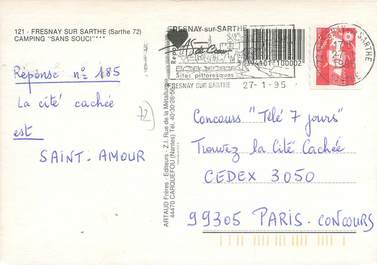 121 - FRESNAY SUR SARTHE (Sarthe 72)
CAMPING "SANS SOUCI"****
Réponse n° 185
La cité cachée
est
SAINT-AMOUR
72
ARTAUD Frères - Editeurs - Z.I. Rue de la Métallurgie
44470 CARQUEFOU (Nantes)
FRESNAY-sur-SARTHE
Sites pittoresques
FRESNAY SUR SARTHE 27-1-95
Concours "Télé 7 jours"
Trouvez la Cité Cachée
CEDEX 3050
99305 PARIS-CONCOURS